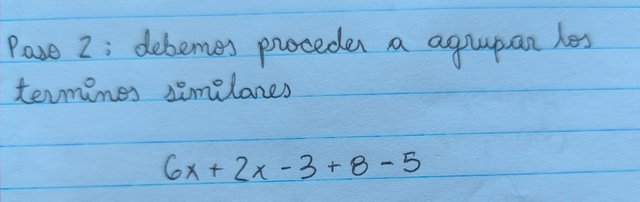 Paso 2: debemos proceder a agrupar los
terminos similares
6x + 2x - 3 + 8 - 5